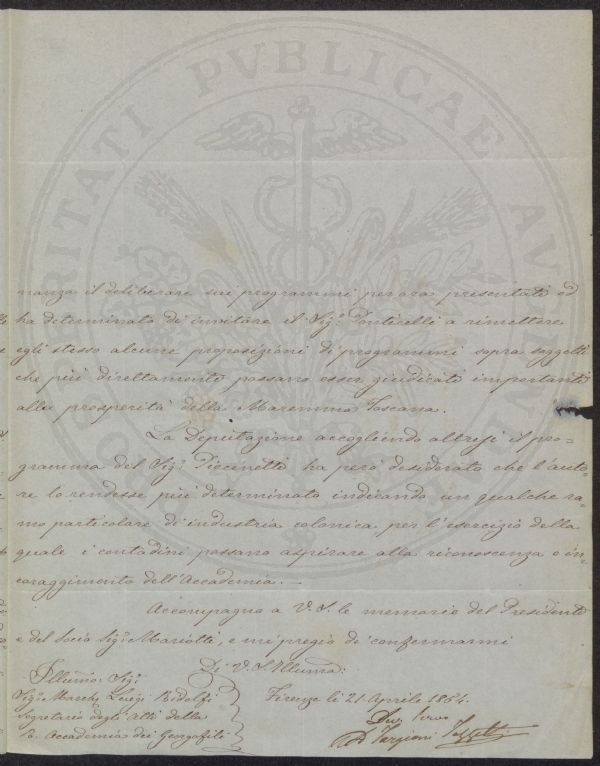 PROSPERITATI PVBLICAE AVGENDAE
nanza il deliberare sui programmi per ora presentati ed
ha determinato di invitare il Sig.r Ponticelli a rimettere
egli stesso alcune proposizioni di programmi sopra soggetti
che più direttamente possano esser giudicati importanti
alla prosperità della Maremma Toscana.
La Deputazione accogliendo altresì il pro=
gramma del Sig.r Piccinetti ha però desiderato che l'auto=
re lo rendesse più determinato indicando un qualche ra=
mo particolare di industria colonica, per l'esercizio della
quale i contadini possano aspirare alla riconoscenza o in=
coraggimento dell'Accademia. —
Accompagno a V. S. le memorie del Presidente
e del Socio Sig.r Mariotti, e mi pregio di confermarmi
Di V. S. Illuma:
Illumo: Sig.
Sig.r March. Luigi Ridolfi
Segretario degli Atti della
R. Accademia dei Georgofili
Firenze li 21 Aprile 1864.
Dev. Servo
A Targioni Tozzetti